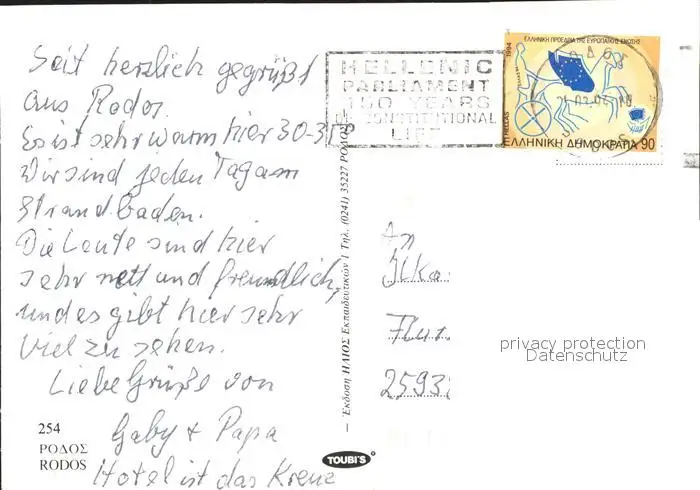 Seit herzlich gegrüßt
aus Rodos.
Es ist sehr warm hier 30-35°
Wir sind jeden Tag am
Strand baden.
Die Leute sind hier
sehr nett und freundlich,
und es gibt hier sehr
viel zu sehen.
Liebe Grüße von
Gaby + Papa
Hotel ist das Kreuz
254
ΡΟΔΟΣ
RODOS
HELLENIC
PARLIAMENT
150 YEARS
OF CONSTITUTIONAL
LIFE
Ἔκδοση ΗΛΙΟΣ Ἐκπαιδευτικῶν 1 Τηλ. (0241) 35227 ΡΟΔΟΣ
TOUBI'S
1994
ΕΛΛΗΝΙΚΗ ΠΡΟΕΔΡΙΑ ΤΗΣ ΕΥΡΩΠΑΪΚΗΣ ΕΝΩΣΗΣ
HELLAS
ΕΛΛΗΝΙΚΗ ΔΗΜΟΚΡΑΤΙΑ 90
An
2593
privacy protection
Datenschutz